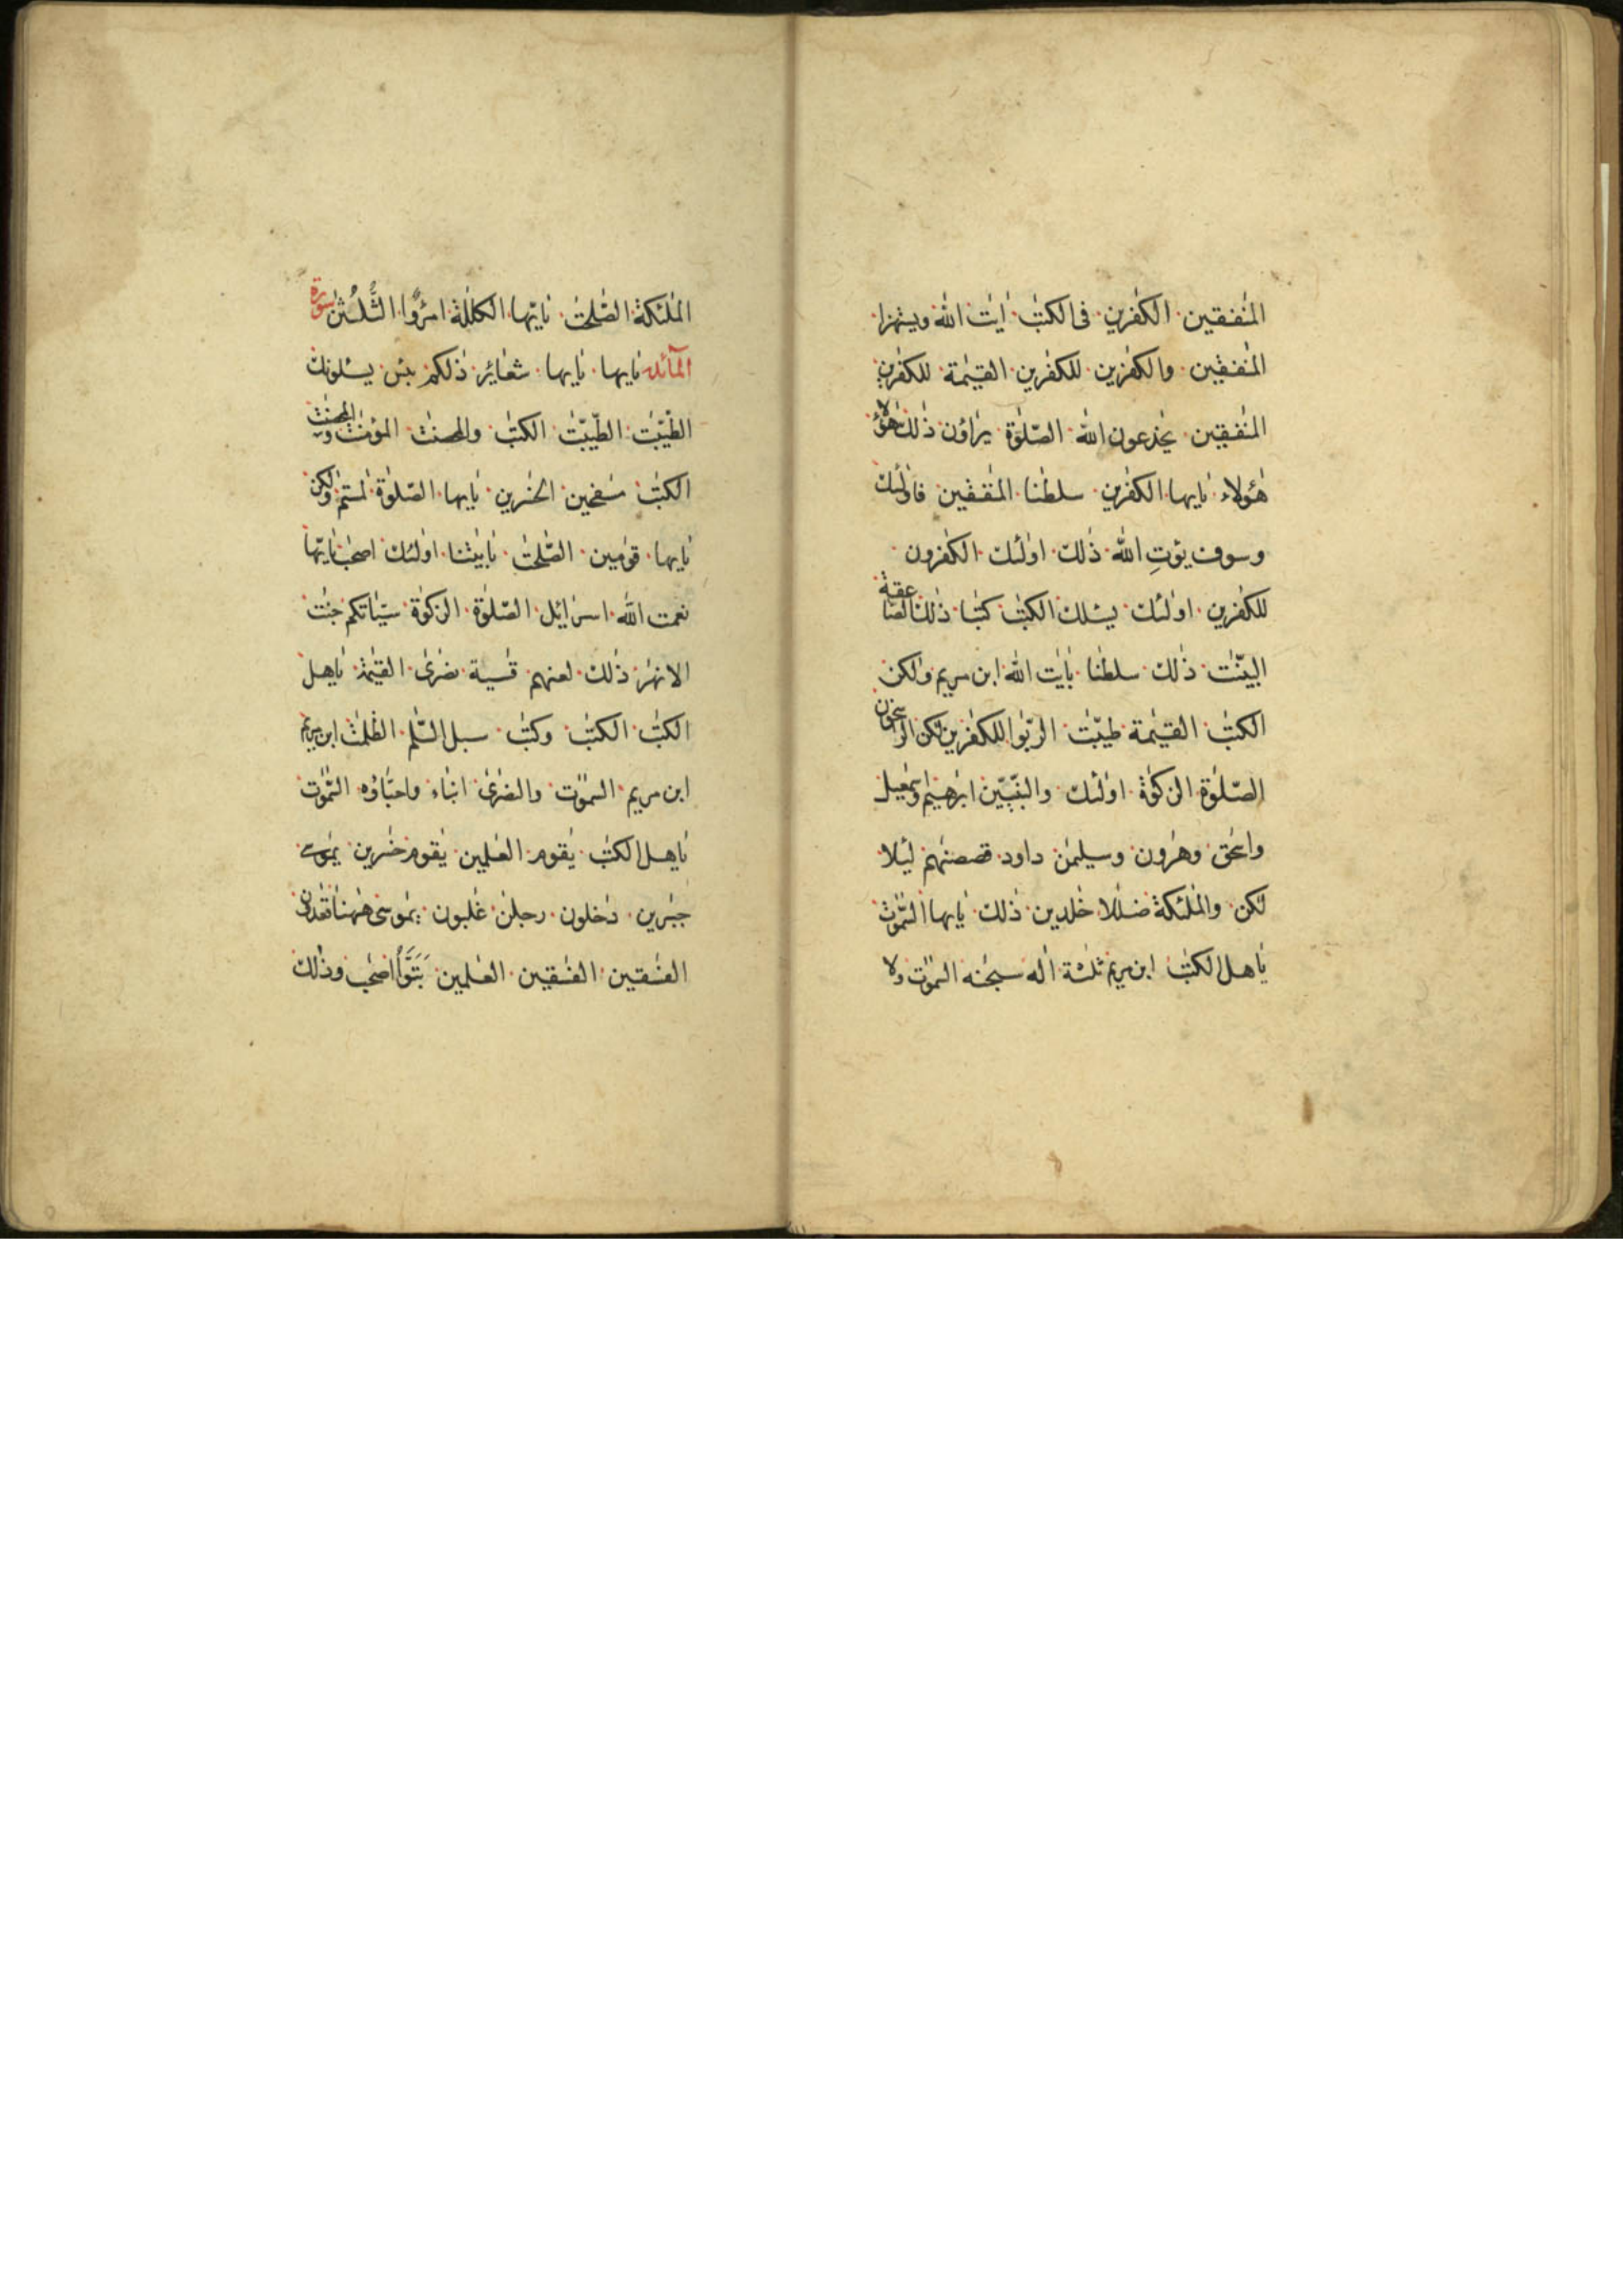 المنٰفقين الكٰفرين فى الكتٰب اٰيٰت الله ويستهزا
المنٰفقين والكٰفرين للكٰفرين القيٰمة للكٰفرين
المنٰفقين يخٰدعون الله الصّلوٰة يراؤن ذٰلك هٰؤلا
هٰؤلاء يٰايها الكٰفرين سلطٰنا المنٰفقين فاولٰئك
وسوف يؤتِ الله ذٰلك اولٰئك الكٰفرون
للكٰفرين اولٰئك يسئلك الكتٰب كتٰبا ذٰلك الصّٰعقة
البيّنٰت ذٰلك سلطٰنا بٰايٰت الله ابن مريم ولٰكن
الكتٰب القيٰمة طيّبٰت الربٰوا للكٰفرين لٰكن الرٰسخون
الصّلوٰة الزكوٰة اولٰئك والنّبيّٖن ابرٰهيم واسمٰعيل
واسحٰق وهٰرون وسليمٰن داود قصصنٰهم لئلا
لٰكن والملٰئكة ضلٰلا خٰلدين ذٰلك يٰايها السّمٰوٰت
يٰاهل الكتٰب ابن مريم ثلٰثة الٰه سبحٰنه السمٰوٰت ولا
الملٰئكة الصّٰلحٰت يٰايّها الكلٰلة امرؤٌا الثُّلُثٰن سورة
المآئدة يٰايها يٰايها شعٰائر ذٰلكم يئس يسئلونك
الطّيّبٰت الطّيّبٰت الكتٰب والمحصنٰت المؤمنٰت والمحصنٰت
الكتٰب مسٰفحين الخٰسرين يٰايها الصّلوٰة لٰمستم ولٰكن
يٰايها قوٰمين الصّٰلحٰت بٰايٰتنا اولٰئك اصحٰب يٰايّها
نعمت الله اسرٰائيل الصّلوٰة الزكوٰة سيّئاتكم جنّٰت
الانهٰر ذٰلك لعنّٰهم قٰسية نصٰرى القيٰمة يٰاهل
الكتٰب الكتٰب وكتٰب سبل السّلٰم الظلمٰت ابن مريم
ابن مريم السمٰوٰت والنصٰرى ابنٰاء واحبّٰاؤه السّمٰوٰت
يٰاهل الكتٰب يٰقوم العٰلمين يٰقوم خٰسرين يٰموسى
جبّٰرين دٰخلون رجلٰن غٰلبون يٰموسى هٰهنا قٰعدون
الفٰسقين الفٰسقين العٰلمين تَبُوَّأَ اصحٰب وذٰلك